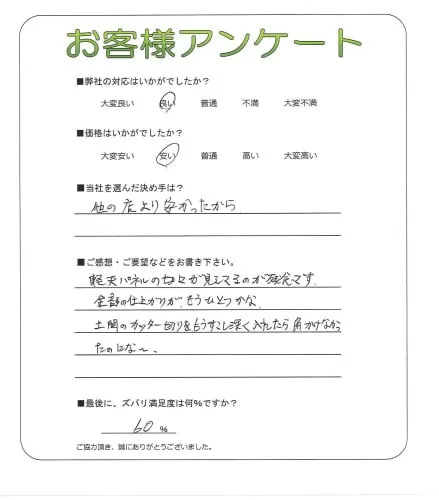 お客様アンケート
■弊社の対応はいかがでしたか?
大変良い 良い 普通 不満 大変不満
■価格はいかがでしたか?
大変安い 安い 普通 高い 大変高い
■当社を選んだ決め手は?
他の店より安かったから
■ご感想・ご要望などをお書き下さい。
軽天パネルの が見えてるのが残念です.
全部の仕上がりが、もうひとつかな.
土間のカッター切りをもうすこし深く入れたら、角かけなかっ
たのにな〜.
■最後に、ズバリ満足度は何%ですか?
60 %
ご協力頂き、誠にありがとうございました。